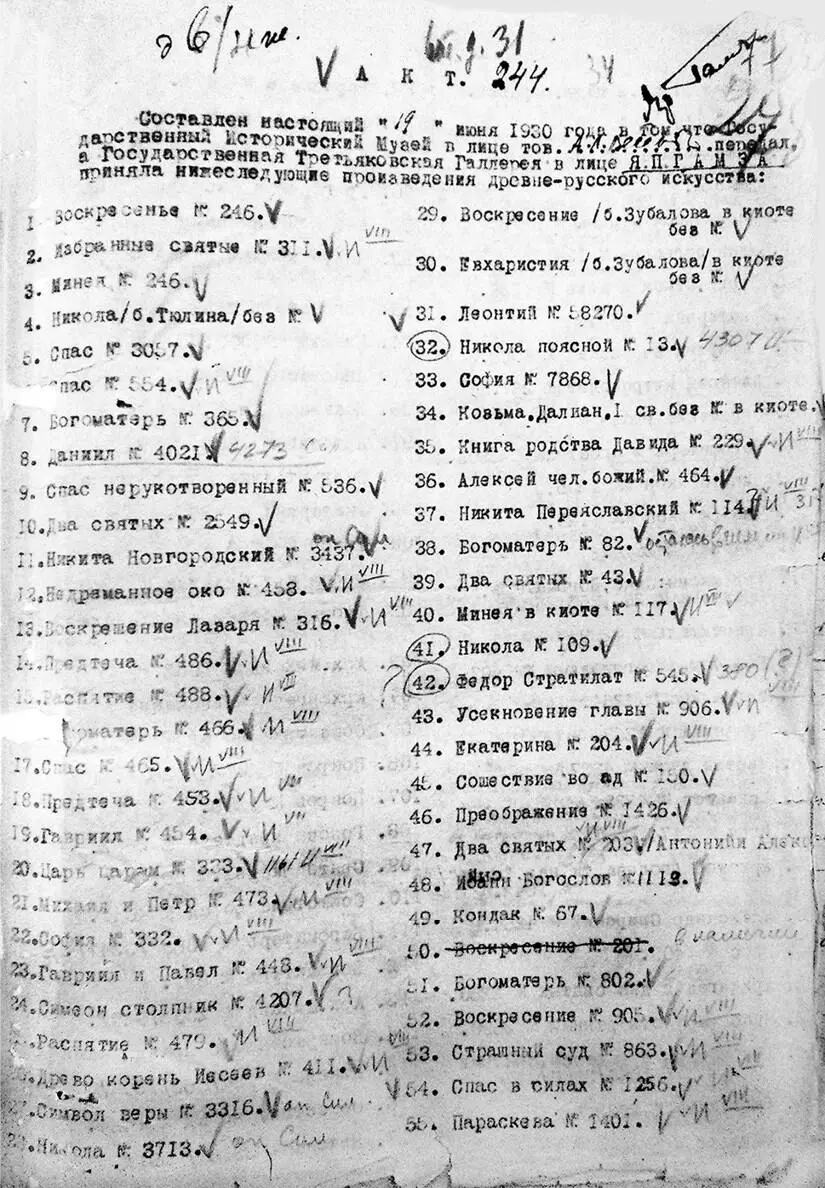 д. 31
АКТ. 244.
Составлен настоящий "19" июня 1930 года в том, что Госу-
дарственный Исторический Музей в лице тов. передал,
а Государственная Третьяковская Галлерея в лице Я.П.ГАМЗА
приняла нижеследующие произведения древне-русского искусства:
1. Воскресенье № 246.
2. Избранные святые № 311. И VIII
3. Минея № 246.
4. Никола/б.Тюлина/без №
5. Спас № 3057.
Спас № 554. И VIII
7. Богоматерь № 365.
8. Даниил № 4021 4273
9. Спас нерукотворенный № 536.
10. Два святых № 2549.
11. Никита Новгородский № 3437. оп Сил
12. Недреманное око № 458. И VIII
13. Воскрешение Лазаря № 316. И VIII
14. Предтеча № 486. И VIII
15. Распятие № 488. И VII
Богоматерь № 466. И VIII
17. Спас № 465. И VIII
18. Предтеча № 453. И VII
19. Гавриил № 454. И VII
20. Царь царем № 333. 1161 И VIII
21. Михаил и Петр № 473. И VIII
22. София № 332. И VIII
23. Гавриил и Павел № 448. И VIII
24. Симеон столпник № 4207. ?
Распятие № 479. И VIII
26. Древо корень Иесеев № 411. И VIII
27. Символ веры № 3316. оп Сил
28. Никола № 3713. оп Сил
29. Воскресение /б.Зубалова в киоте
без №
30. Евхаристия /б.Зубалова/в киоте
без №
31. Леонтий № 58270.
32. Никола поясной № 13. 4307
33. София № 7868.
34. Козьма.Далиан,1 св.без № в киоте.
35. Книга родства Давида № 229. И VIII
36. Алексей чел.божий.№ 464.
37. Никита Переяславский № 114. И VIII
38. Богоматерь № 82.
39. Два святых № 43.
40. Минея в киоте № 117. И VII
41. Никола № 109.
? 42. Федор Стратилат № 545. 380 (?)
43. Усекновение главы № 906. И VIII
44. Екатерина № 204. И VIII
45. Сошествие во ад № 150.
46. Преображение № 1426.
И VIII
47. Два святых № 203./Антонийи Алекс
48. Иоанн Богослов № 1113.
49. Кондак № 67.
50. Воскресение № 201. в наличии
51. Богоматерь № 802.
52. Воскресение № 905. И VIII
53. Страшный суд № 863. И VIII
54. Спас в силах № 1256. И VIII
55. Параскева № 1401. И VIII